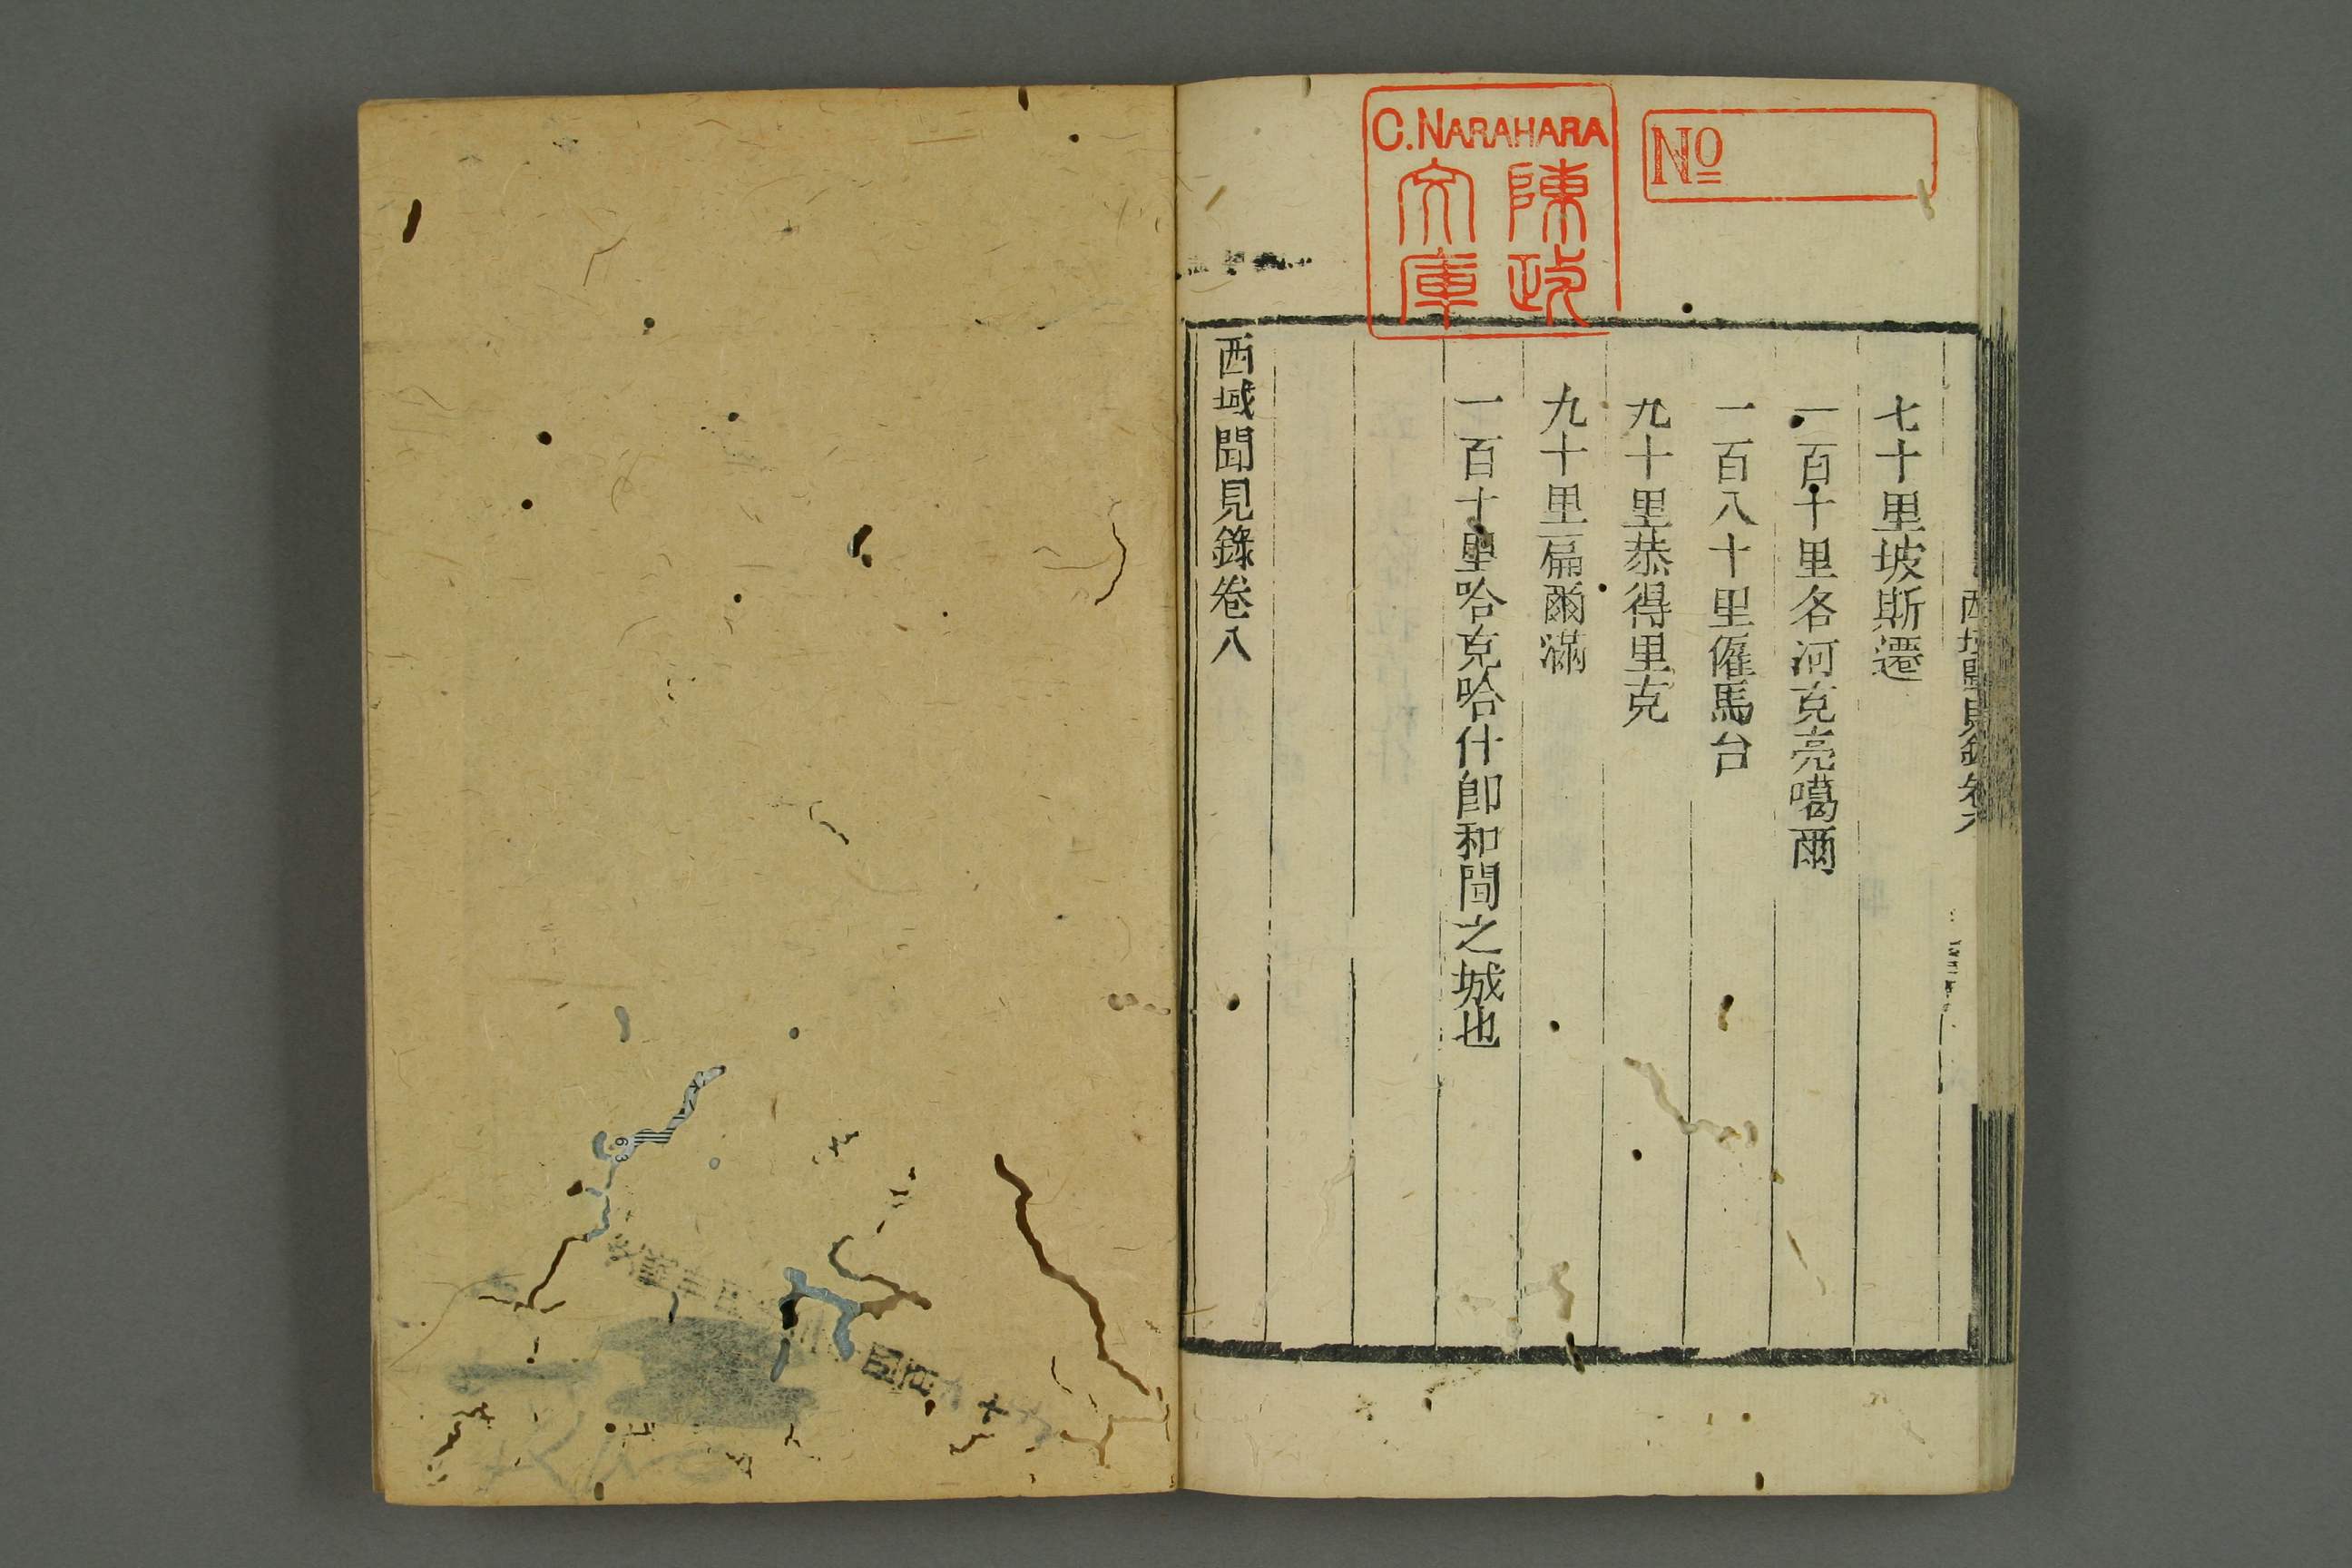 C.NARAHARA
陳政
文庫
Nº
七十里坡斯遷
一百十里各河克亮噶爾
一百八十里僱馬台
九十里恭得里克
九十里扁爾滿
一百十里哈克哈什卽和闐之城也
西域聞見錄卷八